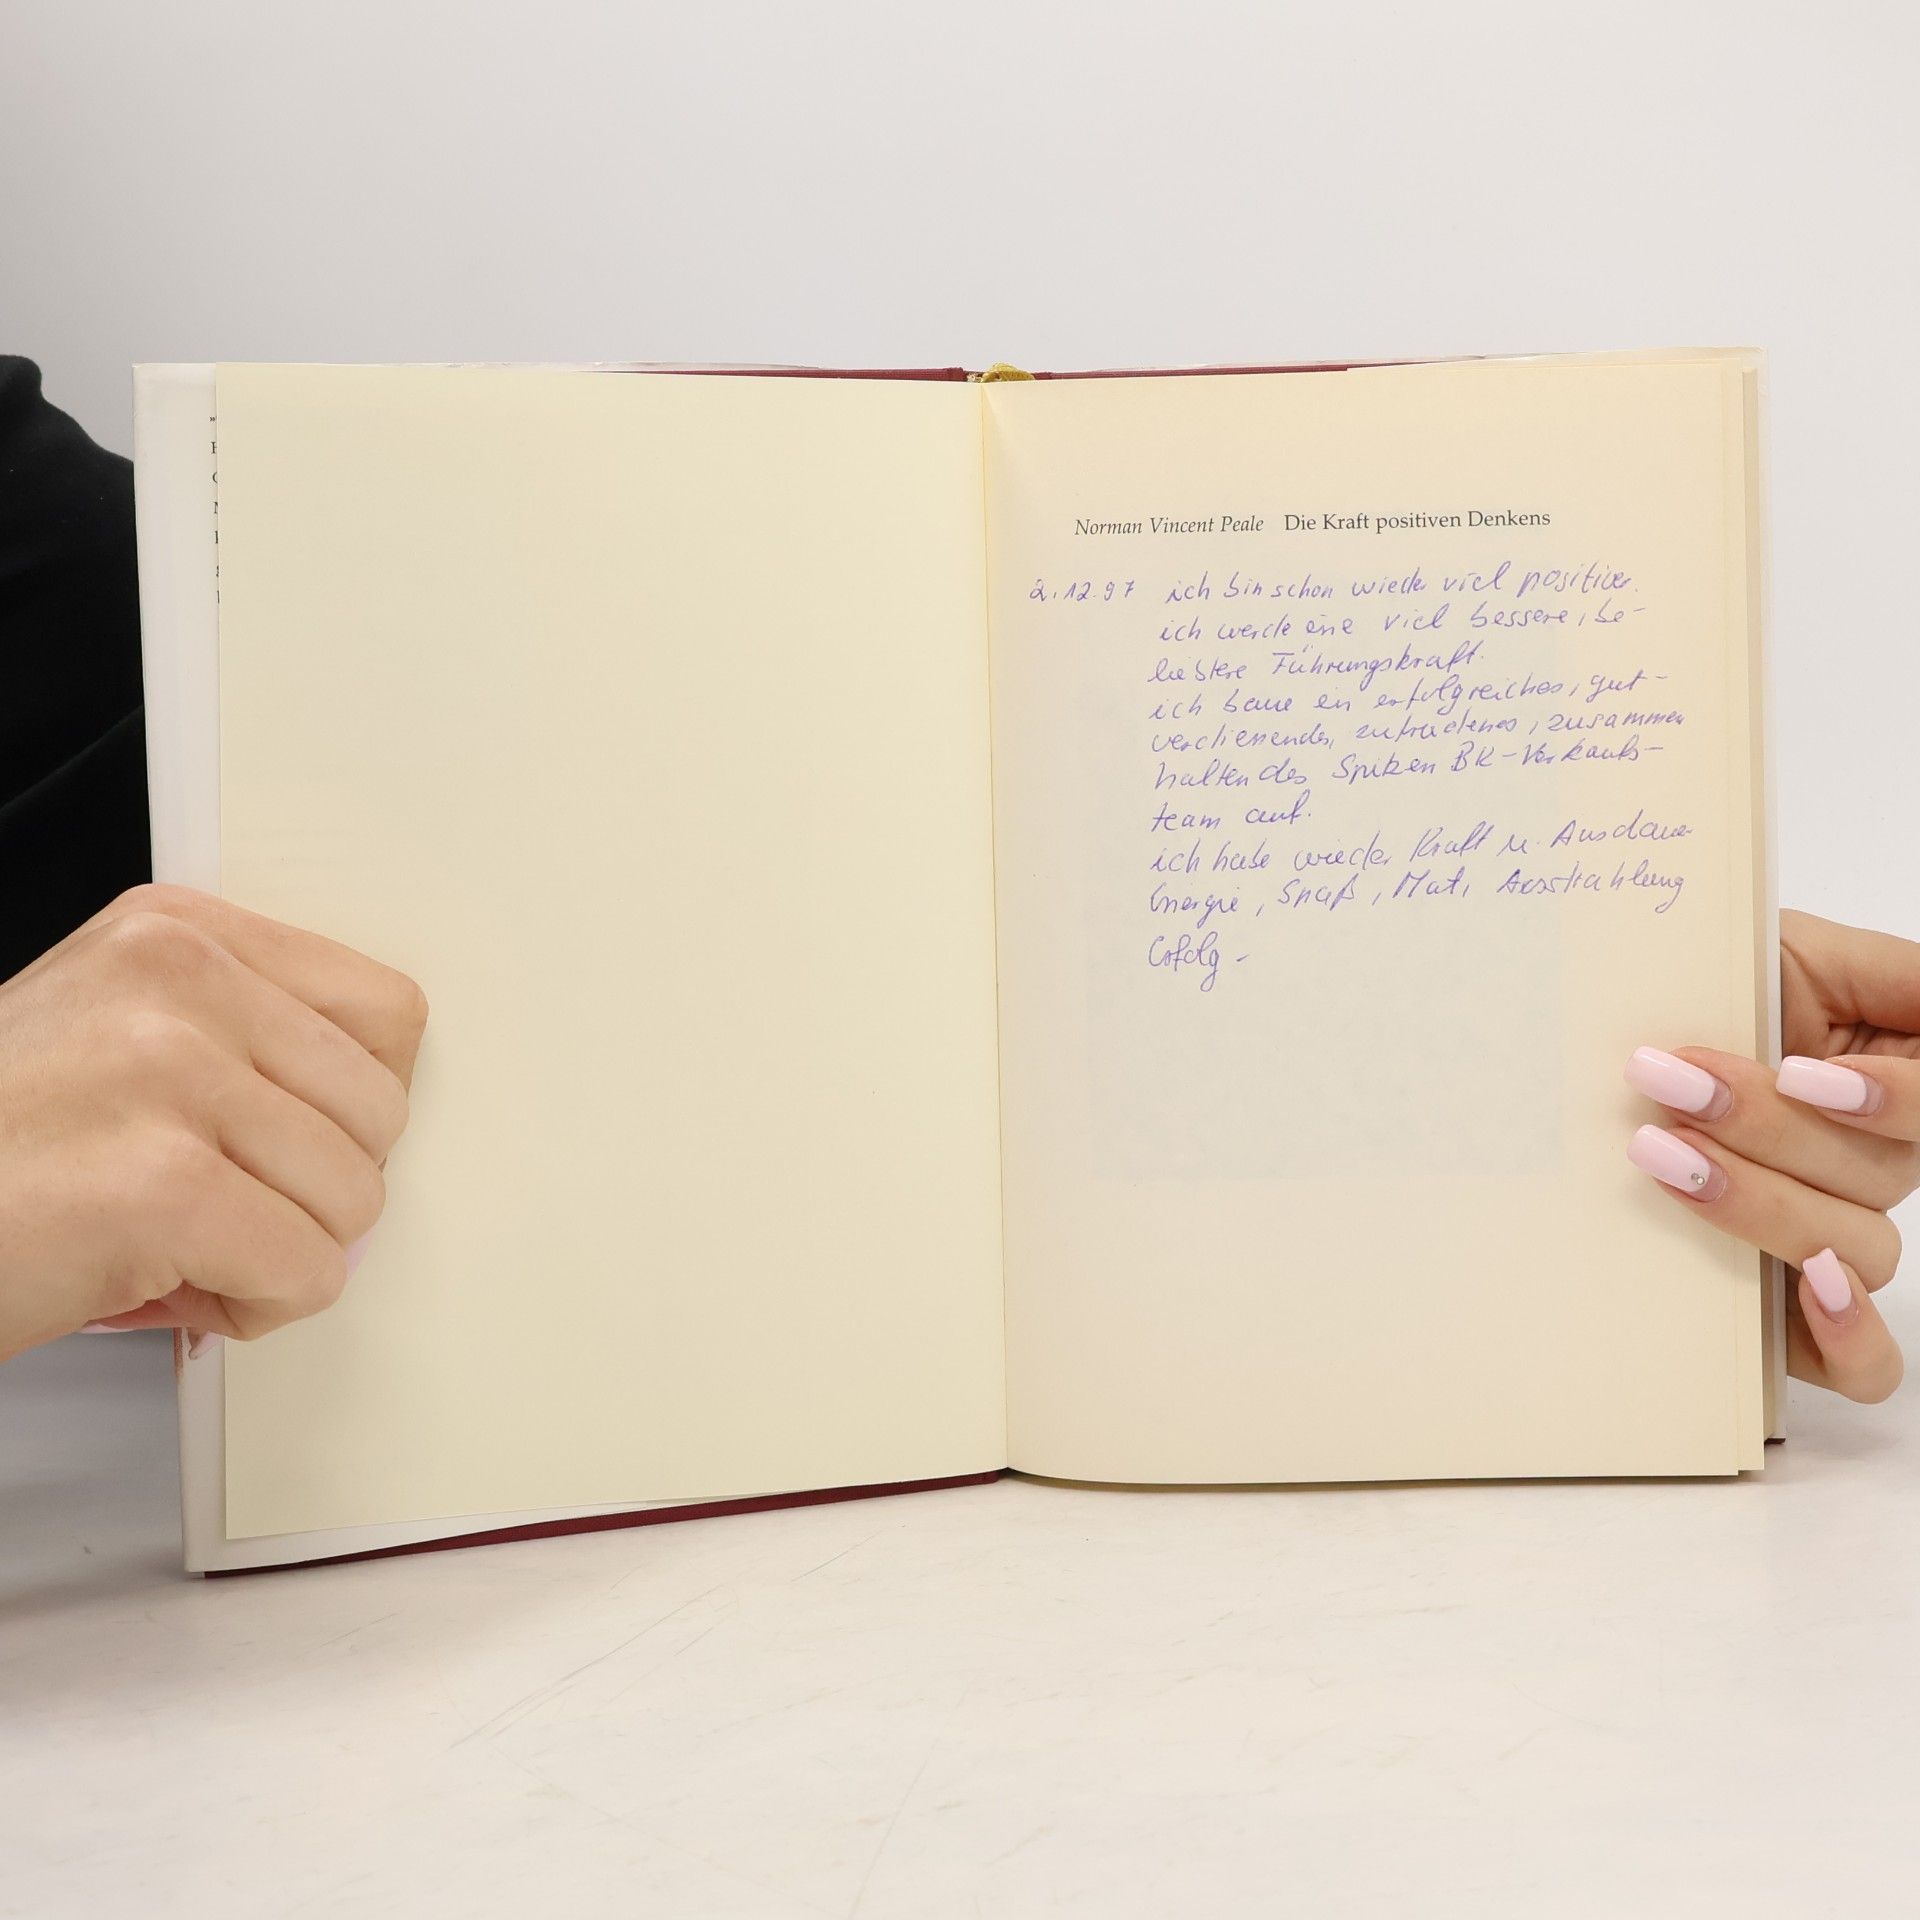 Norman Vincent Peale Die Kraft positiven Denkens
2.12.97 ich bin schon wieder viel positiver.
ich werde eine viel bessere, be-
liebtere Führungskraft.
ich baue ein erfolgreiches, gut-
verdienendes, zufriedenes, zusammen
haltendes Spitzen BK-Verkaufs-
team auf.
ich habe wieder Kraft u. Ausdauer
Energie, Spaß, Mut, Ausstrahlung
Erfolg -